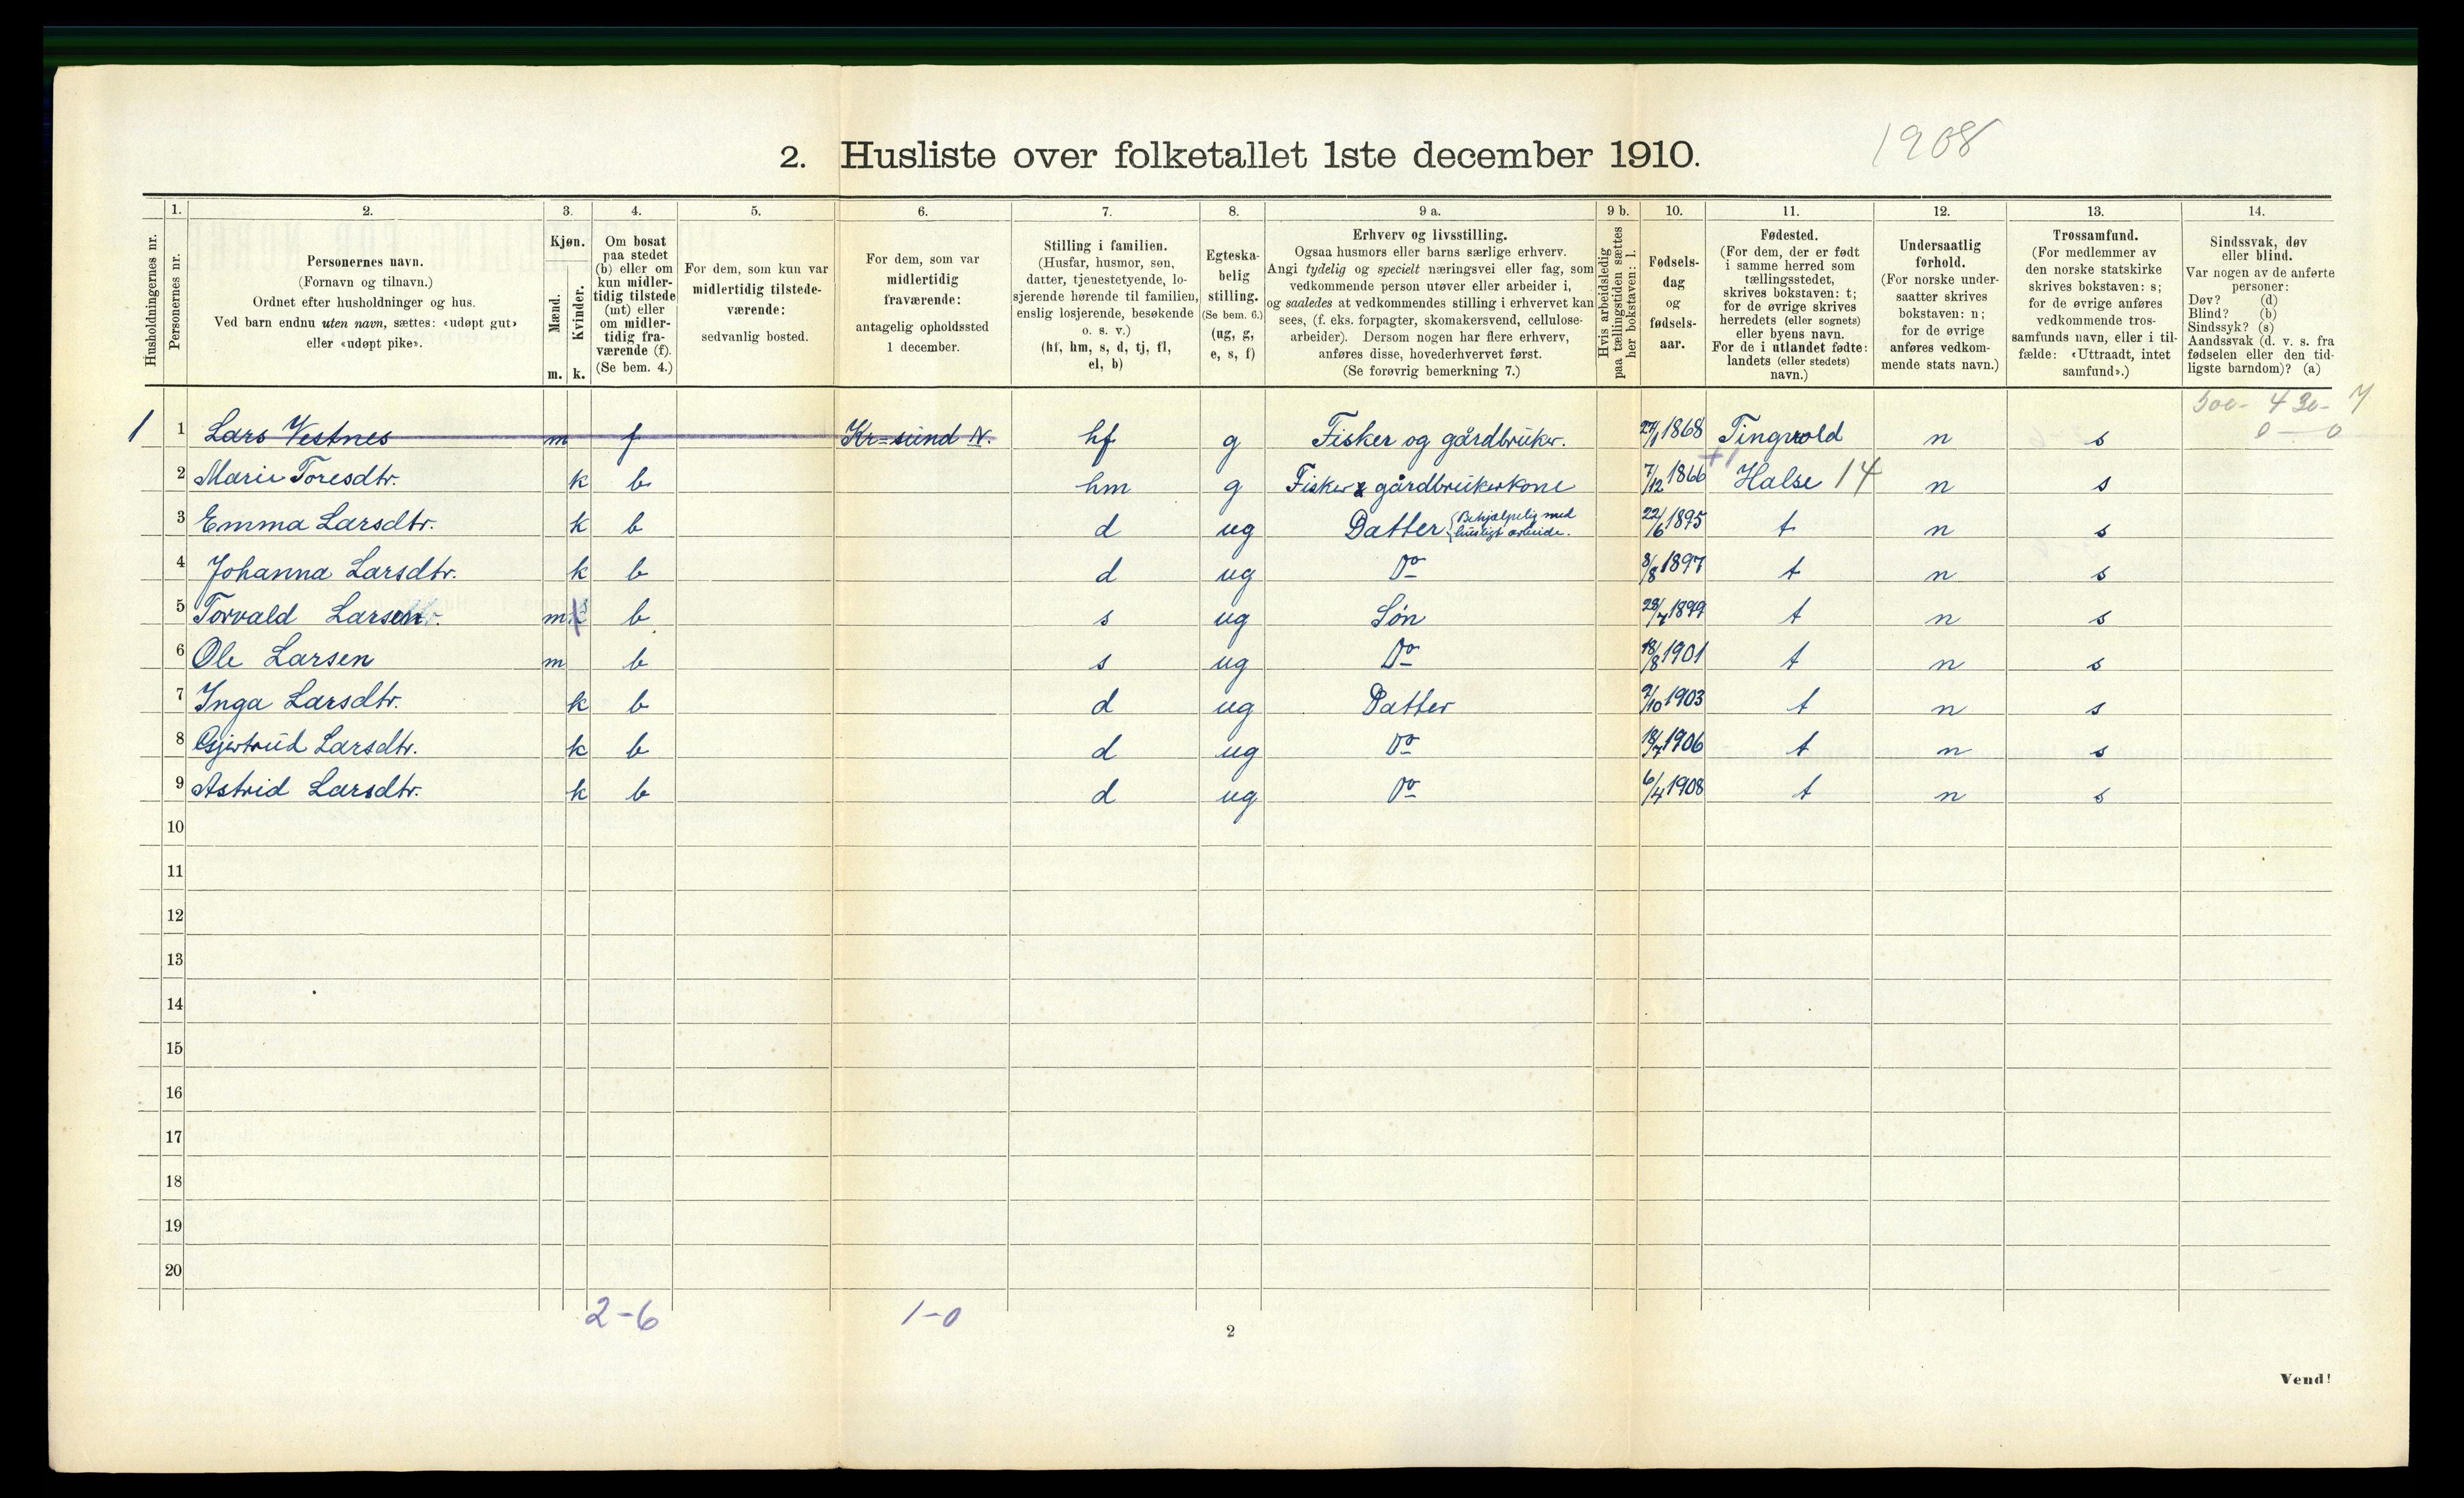 1908
2. Husliste over folketallet 1ste december 1910.
Husholdningernes nr.
1. Personernes nr.
2. Personernes navn. (Fornavn og tilnavn.) Ordnet efter husholdninger og hus. Ved barn endnu uten navn, sættes: «udøpt gut» eller «udøpt pike».
3. Kjøn. Mænd. m. Kvinder. k.
4. Om bosat paa stedet (b) eller om kun midler-tidig tilstede (mt) eller om midler-tidig fra-værende (f). (Se bem. 4.)
5. For dem, som kun var midlertidig tilstede-værende: sedvanlig bosted.
6. For dem, som var midlertidig fraværende: antagelig opholdssted 1 december.
7. Stilling i familien. (Husfar, husmor, søn, datter, tjenestetyende, lo-sjerende hørende til familien, enslig losjerende, besøkende o. s. v.) (hf, hm, s, d, tj, fl, el, b)
8. Egteska-belig stilling. (Se bem. 6.) (ug, g, e, s, f)
9 a. Erhverv og livsstilling. Ogsaa husmors eller barns særlige erhverv. Angi tydelig og specielt næringsvei eller fag, som vedkommende person utøver eller arbeider i, og saaledes at vedkommendes stilling i erhvervet kan sees, (f. eks. forpagter, skomakersvend, cellulose-arbeider). Dersom nogen har flere erhverv, anføres disse, hovederhvervet først. (Se forøvrig bemerkning 7.)
9 b. Hvis arbeidsledig paa tællingstiden sættes her bokstaven: l.
10. Fødsels-dag og fødsels-aar.
11. Fødested. (For dem, der er født i samme herred som tællingsstedet, skrives bokstaven: t; for de øvrige skrives herredets (eller sognets) eller byens navn. For de i utlandet fødte: landets (eller stedets) navn.)
12. Undersaatlig forhold. (For norske under-saatter skrives bokstaven: n; for de øvrige anføres vedkom-mende stats navn.)
13. Trossamfund. (For medlemmer av den norske statskirke skrives bokstaven: s; for de øvrige anføres vedkommende tros-samfunds navn, eller i til-fælde: «Uttraadt, intet samfund».)
14. Sindssvak, døv eller blind. Var nogen av de anførte personer: Døv? (d) Blind? (b) Sindssyk? (s) Aandssvak (d. v. s. fra fødselen eller den tid-ligste barndom)? (a)
500- 430- 7
0 — 0
1 1 Lars Vestnes m f Kr=sund N. hf g Fisker og gårdbruker. 1868 Tingvold n s
2 Marie Toresdtr. k b hm g Fisker & gårdbrukerkone 7/12 1866 Halse 14 n s
3 Emma Larsdtr. k b d ug Datter {Behjælpelig med husligt arbeide. 22/6 1895 t n s
4 Johanna Larsdtr. k b d ug Do 8/8 1897 t n s
5 Torvald Larsen m b s ug Søn 28/7 1899 t n s
6 Ole Larsen m b s ug Do 18/8 1901 t n s
7 Inga Larsdtr. k b d ug Datter 9/10 1903 t n s
8 Gjertrud Larsdtr. k b d ug Do 18/7 1906 t n s
9 Astrid Larsdtr. k b d ug Do 6/4 1908 t n s
10
11
12
13
14
15
16
17
18
19
20
2-6 1-0
2
Vend!